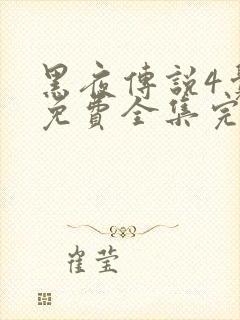 黑夜傳説4
免費全集完
崔莹